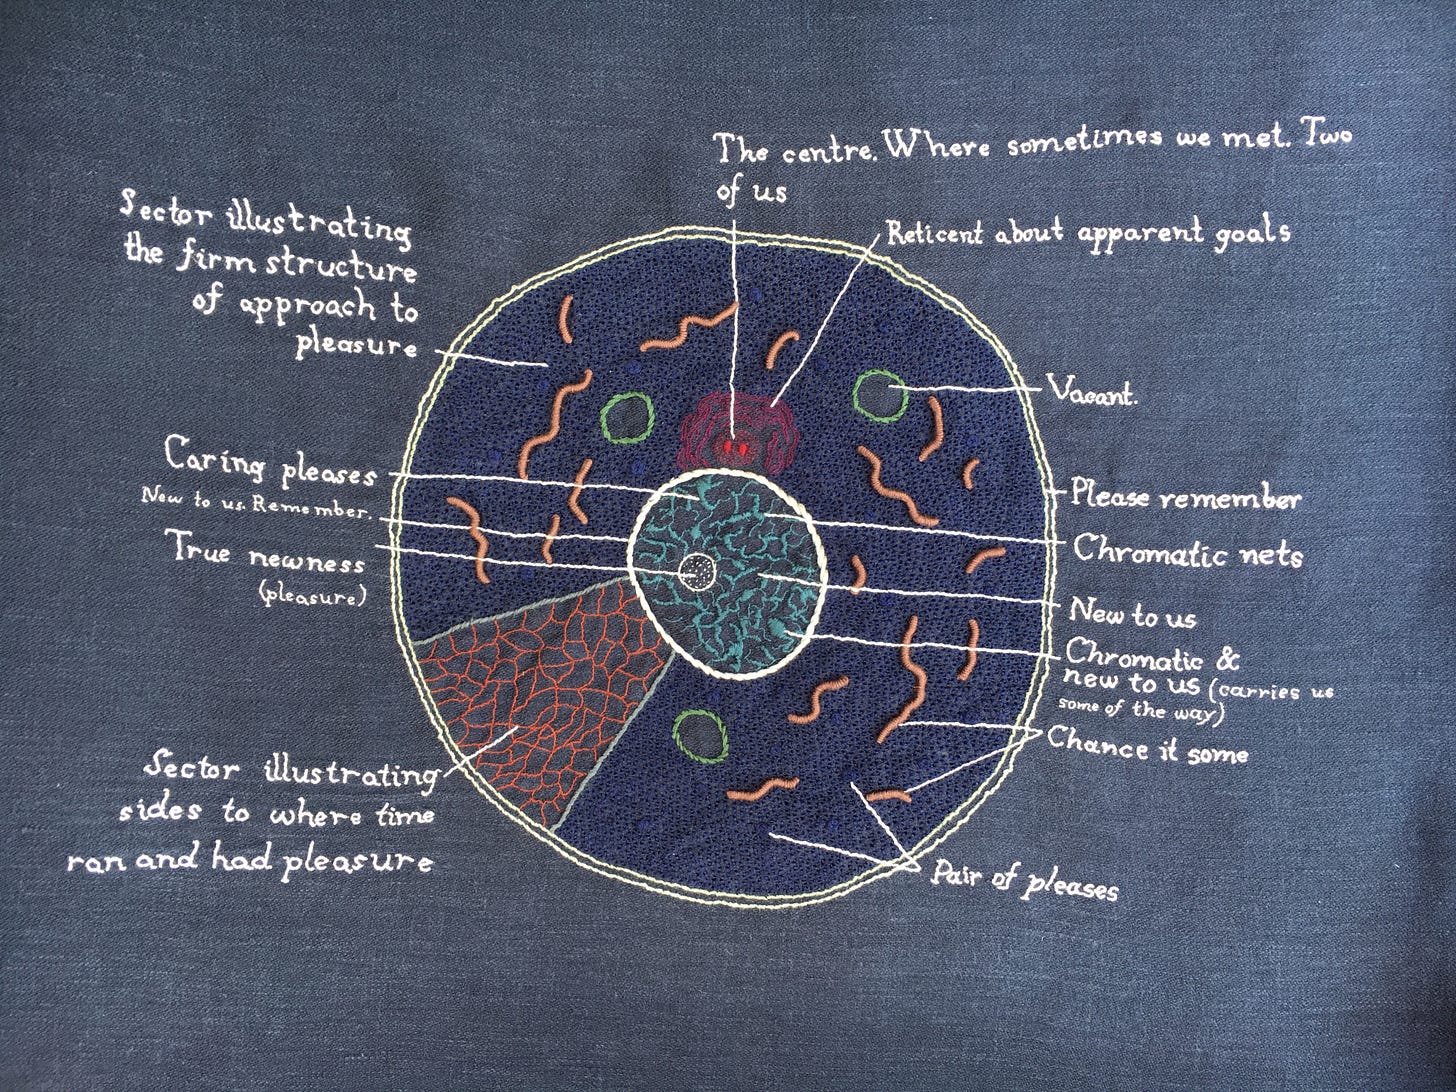 The centre. Where sometimes we met. Two
of us
Reticent about apparent goals
Sector illustrating
the firm structure
of approach to
pleasure
Vacant.
Caring pleases
New to us. Remember.
True newness
(pleasure)
Please remember
Chromatic nets
New to us
Chromatic &
new to us (carries us
some of the way)
Chance it some
Sector illustrating
sides to where time
ran and had pleasure
Pair of pleases